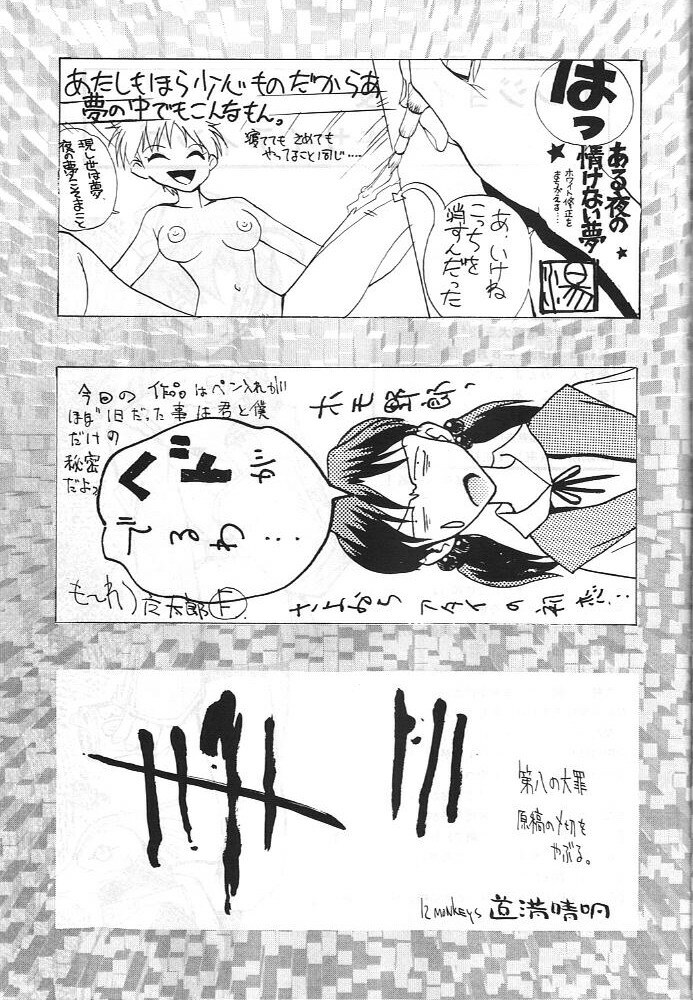 はっ
ある夜の
情けない夢
ホワイト修正を
まちがえる…
あ、いけね
こっちを
消すんだった
あたしもほら少心ものだからあ
夢の中でもこんなもん。
寝てても さめても
やってること同じ……
現し世は夢、
夜の夢こそまこと
今回の作品はペン入れが
ほぼ1日だった事は君と僕
だけの
秘密
だよ。
ヘドが
でるわ…
も〜れつ
第八の大罪
原稿の〆切を
やぶる。
12 MONKEYS 道満晴明